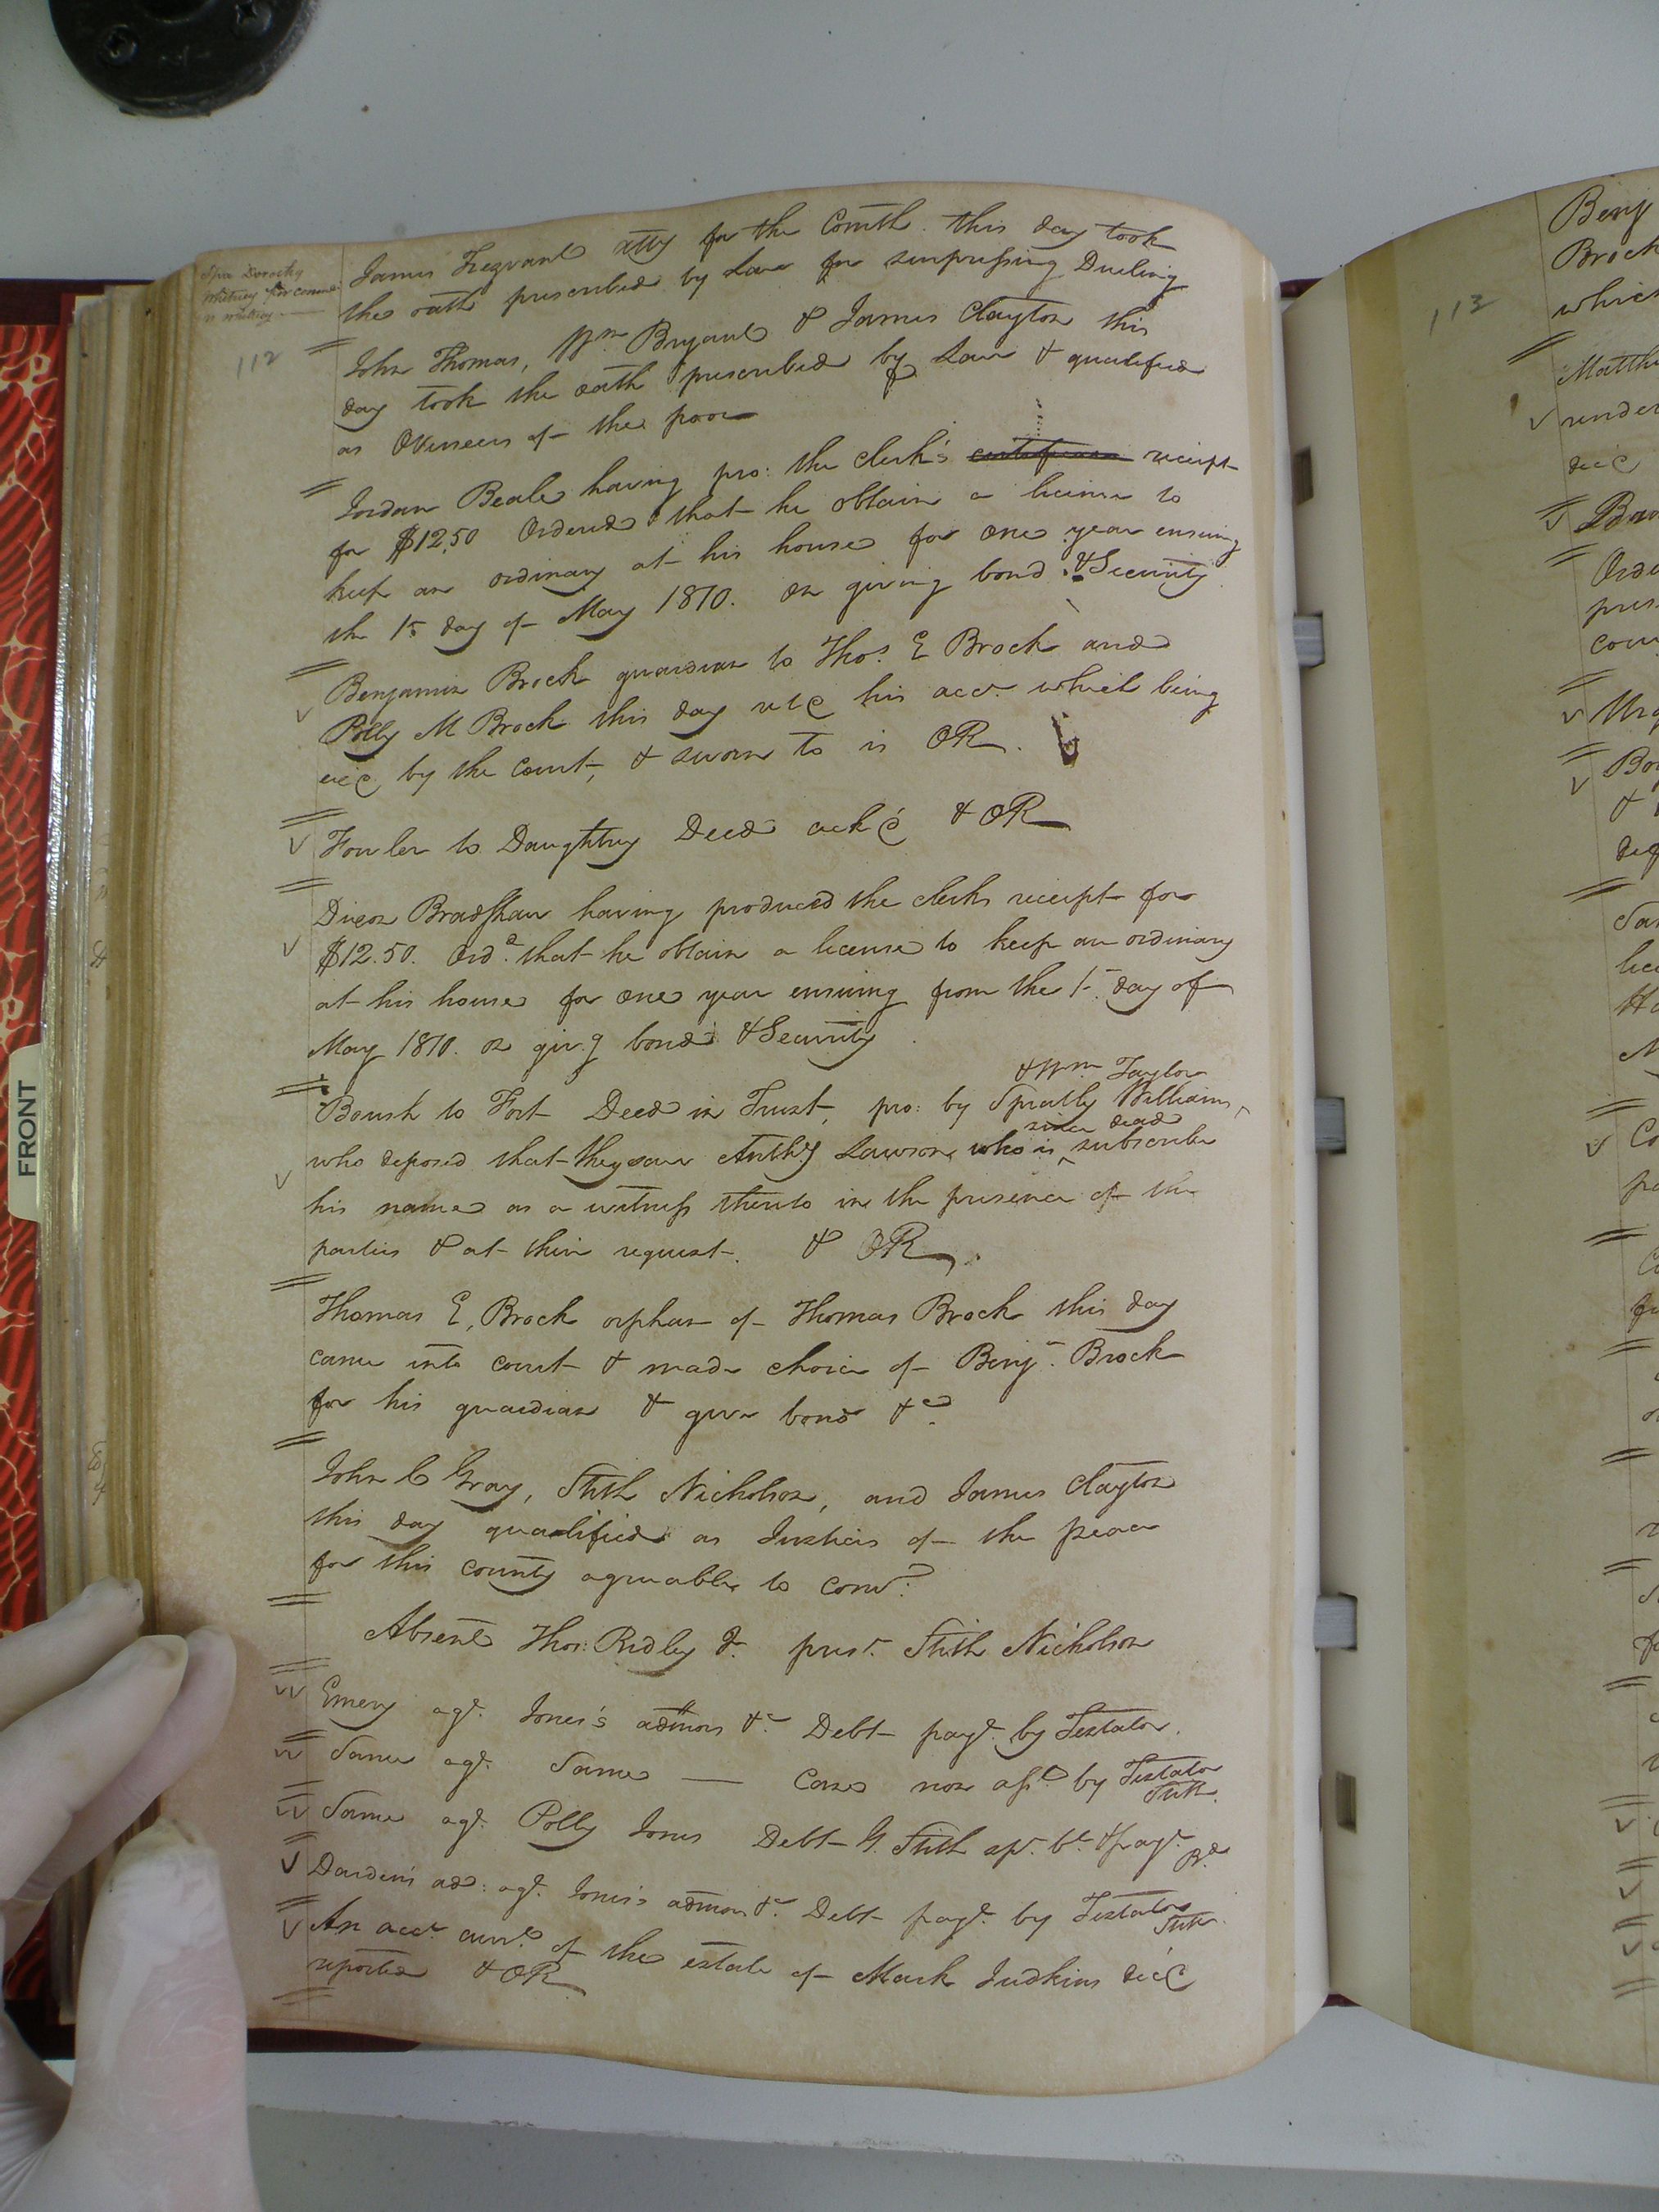 Spa Dorothy
Whitney for
112
James Trezvant atty for the Comth. this day took
the oath prescribed by Law for surpressing Dueling
John Thomas, Wm Bryant & James Clayton this
day took the oath prescribed by Law & qualified
as Overseers of the poor
Jordan Beale having pro: the clerk's certificate receipt
for $12.50 Ordered that he obtain a license to
keep an ordinary at his house for one year ensuing
the 1st day of May 1810. on giving bond & Security
Benjamin Brock guardian to Thos. E Brock and
Polly M Brock this day retd his acct. which being
exd by the court, & sworn to is OR.
Fowler to Daughtry Deed ackd & OR
Dixon Bradshaw having produced the clerks receipt for
$12.50. Ordd. that he obtain a license to keep an ordinary
at his house for one year ensuing from the 1st day of
May 1810. on givg bond & Security
& Wm Taylor
Boush to Fort Deed in Trust, pro: by Spratly Williams
since dead
who deposed that they saw Anthy Lawson who is subscribe
his name as a witness thereto in the presence of the
parties & at their request. & OR
Thomas E, Brock orphan of Thomas Brock this day
came into court & made choice of Benjn. Brock
for his guardian & gave bond &c
John C Gray, Stith Nicholson, and James Clayton
this day qualified as Justices of the peace
for this county agreeable to comn.
Absent Thos. Ridley Jr. prest. Stith Nicholson
Emery agt. Jones's admors &c Debt payt. by Testator.
Same agt. Same — Case non asst by Testator
Stith.
Same agt. Polly Jones Debt G. Stith apr. bl. & payt.
Bd.
Darden's ad: agt. Jones's admor &c Debt payt. by Testator
Stith.
An acct. currt. of the estate of Mark Judkins decd
reported & OR
113
Benj
Brock
which
Matth
render
decd